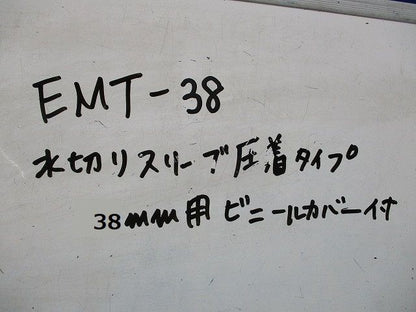 EMT-38
水切りスリーブ圧着タイプ
38mm用ビニールカバー付